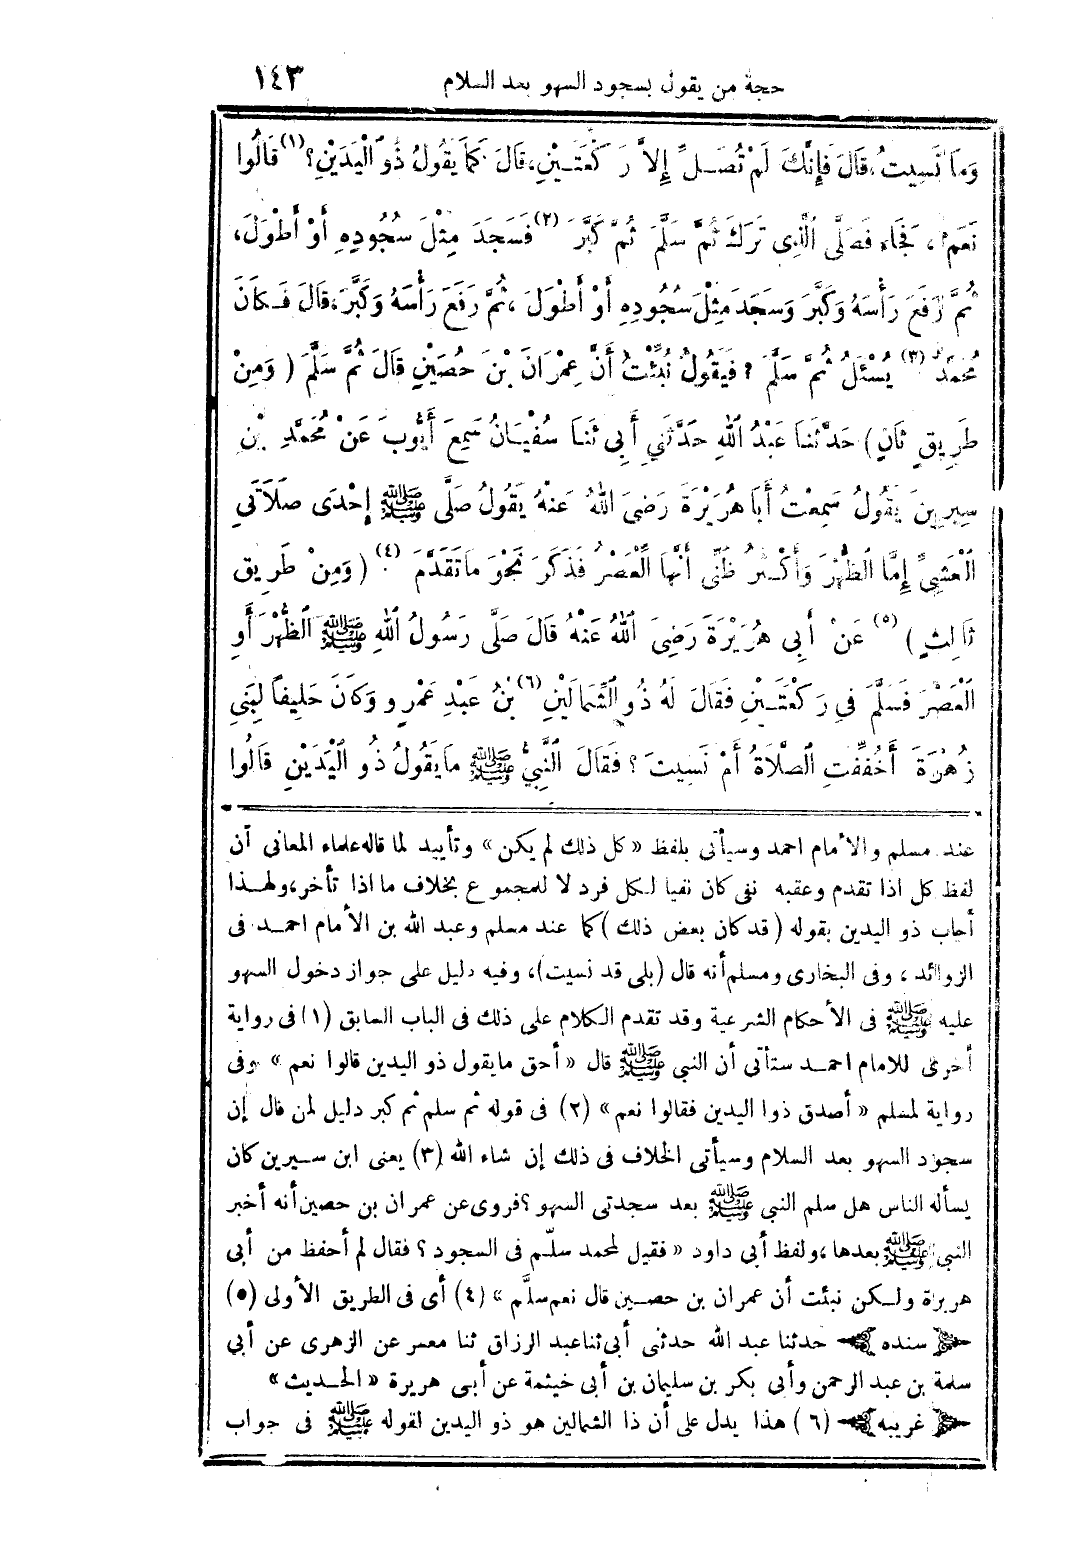 حجة من يقول بسجود السهو بعد السلام ١٤٣
وَمَا نَسِيتُ، قَالَ فَإِنَّكَ لَمْ تُصَلِّ إِلاَّ رَكْعَتَيْنِ، قَالَ كَمَا يَقُولُ ذُو الْيَدَيْنِ؟ (١) قَالُوا
نَعَمْ، فَجَاءَ فَصَلَّى الَّذِى تَرَكَ ثُمَّ سَلَّمَ ثُمَّ كَبَّرَ (٢) فَسَجَدَ مِثْلَ سُجُودِهِ أَوْ أَطْوَلَ،
ثُمَّ رَفَعَ رَأْسَهُ وَكَبَّرَ وَسَجَدَ مِثْلَ سُجُودِهِ أَوْ أَطْوَلَ، ثُمَّ رَفَعَ رَأْسَهُ وَكَبَّرَ، قَالَ فَكَانَ
مُحَمَّدٌ (٣) يُسْئَلُ ثُمَّ سَلَّمَ؟ فَيَقُولُ نُبِّئْتُ أَنَّ عِمْرَانَ بْنَ حُصَيْنٍ قَالَ ثُمَّ سَلَّمَ (وَمِنْ
طَرِيقٍ ثَانٍ) حَدَّثَنَا عَبْدُ اللهِ حَدَّثَنِي أَبِى ثَنَا سُفْيَانُ سَمِعَ أَيُّوبَ عَنْ مُحَمَّدِ بْنِ
سِيرِينَ يَقُولُ سَمِعْتُ أَبَا هُرَيْرَةَ رَضِىَ اللهُ عَنْهُ يَقُولُ صَلَّى ﷺ إِحْدَى صَلَاتَىِ
الْعَشِىِّ إِمَّا الظُّهْرَ وَأَكْثَرُ ظَنِّى أَنَّهَا الْعَصْرُ فَذَكَرَ نَحْوَ مَا تَقَدَّمَ (٤). (وَمِنْ طَرِيقٍ
ثَالِثٍ) (٥) عَنْ أَبِى هُرَيْرَةَ رَضِىَ اللهُ عَنْهُ قَالَ صَلَّى رَسُولُ اللهِ ﷺ الظُّهْرَ أَوِ
الْعَصْرَ فَسَلَّمَ فِى رَكْعَتَيْنِ فَقَالَ لَهُ ذُو الشِّمَالَيْنِ (٦) بْنُ عَبْدِ عَمْرٍو وَكَانَ حَلِيفًا لِبَنِى
زُهْرَةَ أَخُفِّفَتِ الصَّلَاةُ أَمْ نَسِيتَ؟ فَقَالَ النَّبِيُّ ﷺ مَا يَقُولُ ذُو الْيَدَيْنِ قَالُوا
عند مسلم والأمام احمد وسيأتى بلفظ «كل ذلك لم يكن» وتأييد لما قاله علماء المعانى أن
لفظ كل اذا تقدم وعقبه نفى كان نفيا لكل فرد لا للمجموع بخلاف ما اذا تأخر، ولهذا
أجاب ذو اليدين بقوله (قد كان بعض ذلك) كما عند مسلم وعبد الله بن الأمام احمد فى
الزوائد، وفى البخارى ومسلم أنه قال (بلى قد نسيت)، وفيه دليل على جواز دخول السهو
عليه ﷺ فى الأحكام الشرعية وقد تقدم الكلام على ذلك فى الباب السابق (١) فى رواية
أخرى للامام احمد ستأتى أن النبى ﷺ قال «أحق ما يقول ذو اليدين قالوا نعم» وفى
رواية لمسلم «أصدق ذوا اليدين فقالوا نعم» (٢) فى قوله ثم سلم ثم كبر دليل لمن قال إن
سجود السهو بعد السلام وسيأتى الخلاف فى ذلك إن شاء الله (٣) يعنى ابن سيرين كان
يسأله الناس هل سلم النبى ﷺ بعد سجدتى السهو؟ فروى عن عمران بن حصين أنه أخبر
النبى ﷺ بعدها، ولفظ أبى داود «فقيل لمحمد سلّم فى السجود؟ فقال لم أحفظ من أبى
هريرة ولكن نبئت أن عمران بن حصين قال نعم سلَّم» (٤) أى فى الطريق الأولى (٥)
﴿سنده﴾ حدثنا عبد الله حدثنى أبى ثنا عبد الرزاق ثنا معمر عن الزهرى عن أبى
سلمة بن عبد الرحمن وأبى بكر بن سليمان بن أبى خيثمة عن أبى هريرة «الحديث»
﴿غريبه﴾ (٦) هذا يدل على أن ذا الشمالين هو ذو اليدين لقوله ﷺ فى جواب